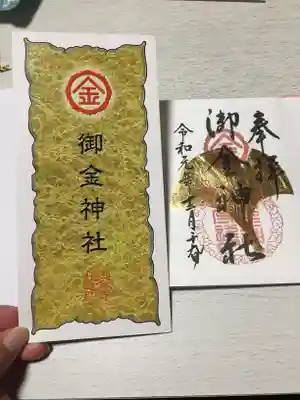 金
御金神社
奉拝
御金神社
令和元年十二月十五日